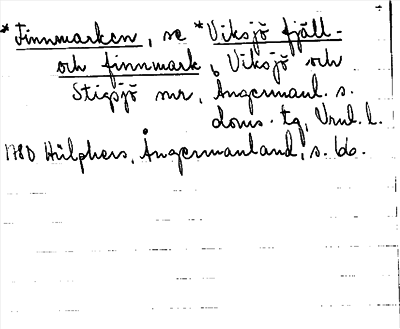 *Finnmarken, se *Viksjö fjäll-
och finnmark, Viksjö och
Stigsjö snr, Ångermanl. s.
doms. tg, Vnrl. l.
1780 Hülphers, Ångermanland, s. 66.